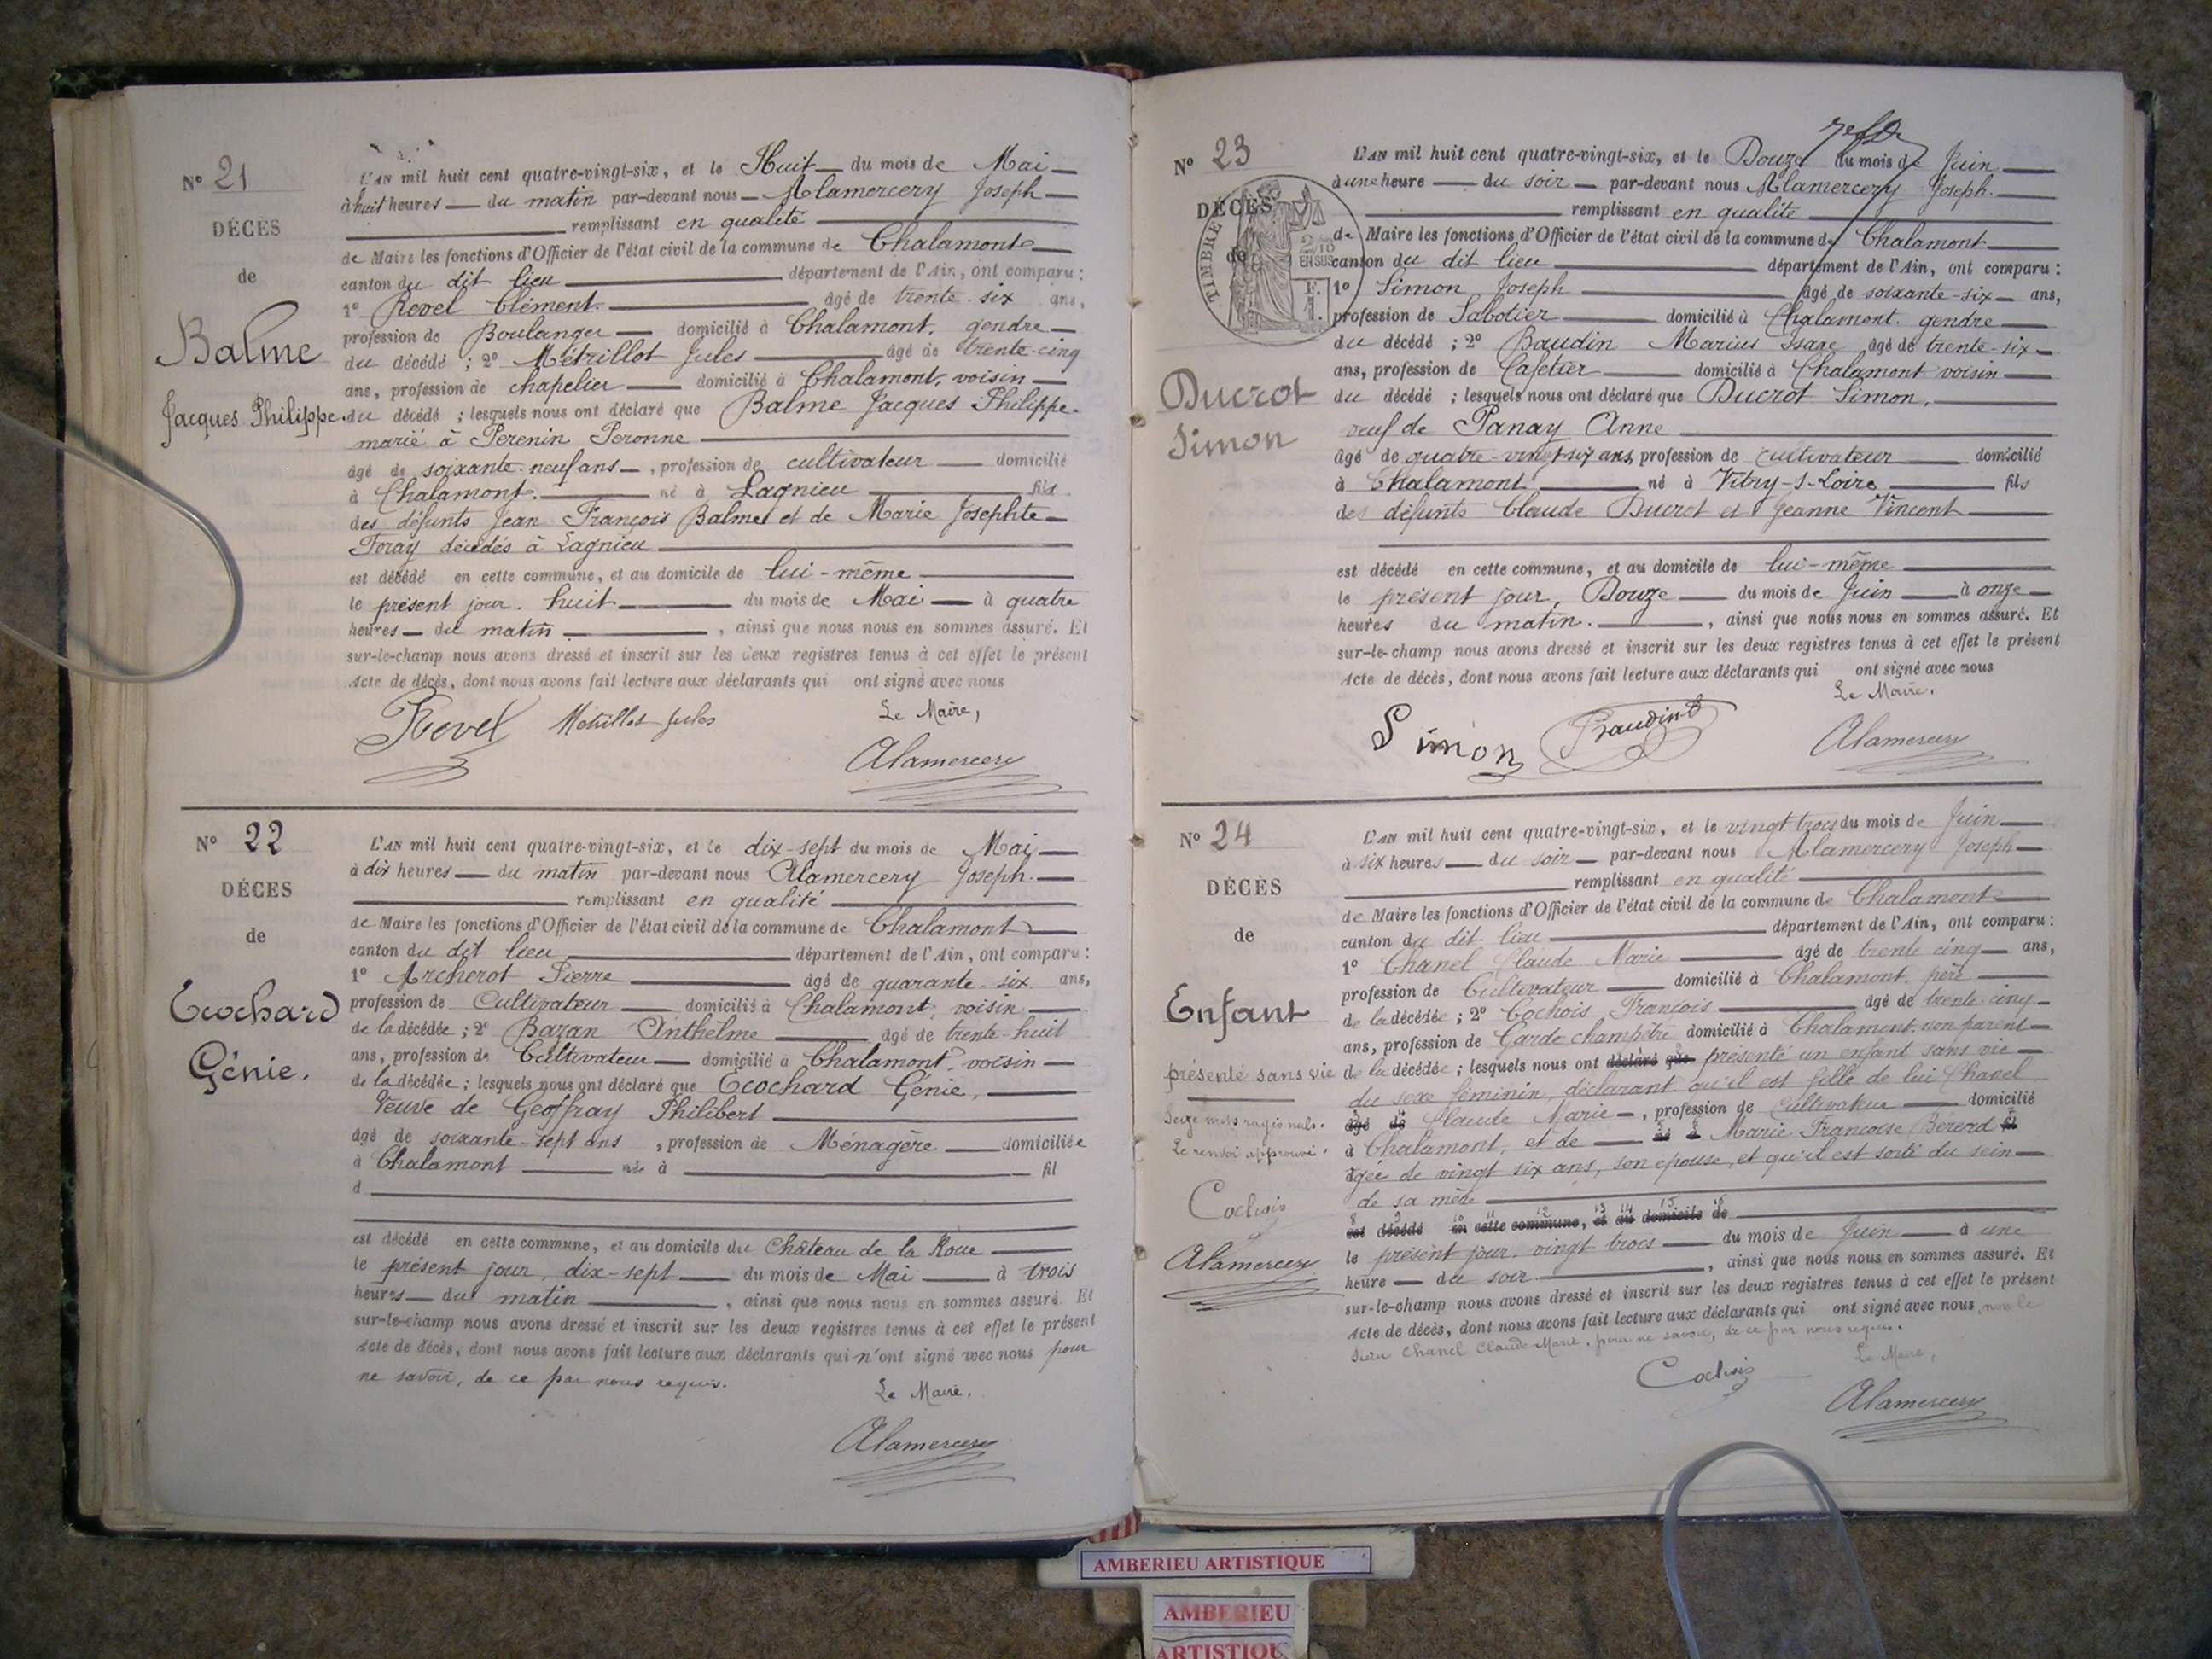 N° 21
DÉCÈS
de
Balme
Jacques Philippe.
L'AN mil huit cent quatre-vingt-six, et le Huit du mois de Mai
à huit heures du matin par-devant nous Alamercery Joseph
remplissant en qualité
de Maire les fonctions d'Officier de l'état civil de la commune de Chalamont
canton du dit lieu département de l'Ain, ont comparu :
1° Revel Clément. âgé de trente-six ans,
profession de Boulanger domicilié à Chalamont, gendre
du décédé ; 2° Métrillot Jules âgé de trente-cinq
ans, profession de chapelier domicilié à Chalamont, voisin
du décédé ; lesquels nous ont déclaré que Balme Jacques Philippe.
marié à Perenin Peronne
âgé de soixante-neuf ans, profession de cultivateur domicilié
à Chalamont. né à Lagnieu fils
des défunts Jean François Balme et de Marie Josephte
Foray décédés à Lagnieu
est décédé en cette commune, et au domicile de lui-même
le présent jour. huit du mois de Mai à quatre
heures du matin, ainsi que nous nous en sommes assuré. Et
sur-le-champ nous avons dressé et inscrit sur les deux registres tenus à cet effet le présent
Acte de décès, dont nous avons fait lecture aux déclarants qui ont signé avec nous
Le Maire,
Revel Métrillot Jules Alamercery
N° 22
DÉCES
de
Ecochard
Génie.
L'AN mil huit cent quatre-vingt-six, et le dix-sept du mois de Mai
à dix heures du matin par-devant nous Alamercery Joseph.
remplissant en qualité
de Maire les fonctions d'Officier de l'état civil de la commune de Chalamont
canton du dit lieu département de l'Ain, ont comparu :
1° Archerot Pierre âgé de quarante-six ans,
profession de Cultivateur domicilié à Chalamont, voisin
de la décédée ; 2° Bazan Anthelme âgé de trente-huit
ans, profession de Cultivateur domicilié à Chalamont, voisin
de la décédée ; lesquels nous ont déclaré que Ecochard Génie,
Veuve de Geoffray Philibert
âgé de soixante-sept ans, profession de Ménagère domiciliée
à Chalamont née à fil
d
est décédé en cette commune, et au domicile du Château de la Roue
le présent jour, dix-sept du mois de Mai à trois
heures du matin, ainsi que nous nous en sommes assuré. Et
sur-le-champ nous avons dressé et inscrit sur les deux registres tenus à cet effet le présent
Acte de décès, dont nous avons fait lecture aux déclarants qui n'ont signé avec nous pour
ne savoir, de ce par nous requis.
Le Maire.
Alamercery
N° 23
DÉCÈS
de
TIMBRE
2/10
EN SUS
F.
1.
Ducrot
Simon
L'AN mil huit cent quatre-vingt-six, et le Douze du mois de Juin
à une heure du soir par-devant nous Alamercery Joseph.
remplissant en qualité
de Maire les fonctions d'Officier de l'état civil de la commune de Chalamont
canton du dit lieu département de l'Ain, ont comparu :
1° Simon Joseph âgé de soixante-six ans,
profession de Sabotier domicilié à Chalamont. gendre
du décédé ; 2° Baudin Marius Isaac âgé de trente-six
ans, profession de Cafetier domicilié à Chalamont voisin
du décédé ; lesquels nous ont déclaré que Ducrot Simon,
veuf de Panay Anne
âgé de quatre-vingt-six ans, profession de cultivateur domicilié
à Chalamont né à Vitry-s-Loire fils
des défunts Claude Ducrot et Jeanne Vincent
est décédé en cette commune, et au domicile de lui-même
le présent jour, Douze du mois de Juin à onze
heures du matin., ainsi que nous nous en sommes assuré. Et
sur-le-champ nous avons dressé et inscrit sur les deux registres tenus à cet effet le présent
Acte de décès, dont nous avons fait lecture aux déclarants qui ont signé avec nous
Le Maire.
Simon Baudin Alamercery
N° 24
DÉCÈS
de
Enfant
présenté sans vie
Seize mots rayés nuls.
Le renvoi approuvé.
Cochois
Alamercery
L'AN mil huit cent quatre-vingt-six, et le vingt trois du mois de Juin
à six heures du soir par-devant nous Alamercery Joseph
remplissant en qualité
de Maire les fonctions d'Officier de l'état civil de la commune de Chalamont
canton du dit lieu département de l'Ain, ont comparu :
1° Chanel Claude Marie âgé de trente cinq ans,
profession de Cultivateur domicilié à Chalamont, père
de la décédée ; 2° Cochois François âgé de trente-cinq
ans, profession de Garde champêtre domicilié à Chalamont, non parent
de la décédée ; lesquels nous ont déclaré que présenté un enfant sans vie
du sexe féminin, déclarant qu'il est fille de lui Chanel
âgé de Claude Marie, profession de cultivateur domicilié
à Chalamont, et de né à Marie Françoise Bérerd
âgée de vingt six ans, son épouse, et qu'il est sorti du sein
de sa mère
8 9 10 11 12 13 14 15 16
est décédé en cette commune, et au domicile de
le présent jour. vingt trois du mois de Juin à une
heure du soir, ainsi que nous nous en sommes assuré. Et
sur-le-champ nous avons dressé et inscrit sur les deux registres tenus à cet effet le présent
Acte de décès, dont nous avons fait lecture aux déclarants qui ont signé avec nous, non le
sieur Chanel Claude Marie, pour ne savoir, de ce par nous requis.
Le Maire,
Cochois Alamercery
AMBERIEU ARTISTIQUE
AMBERIEU
ARTISTIQUE